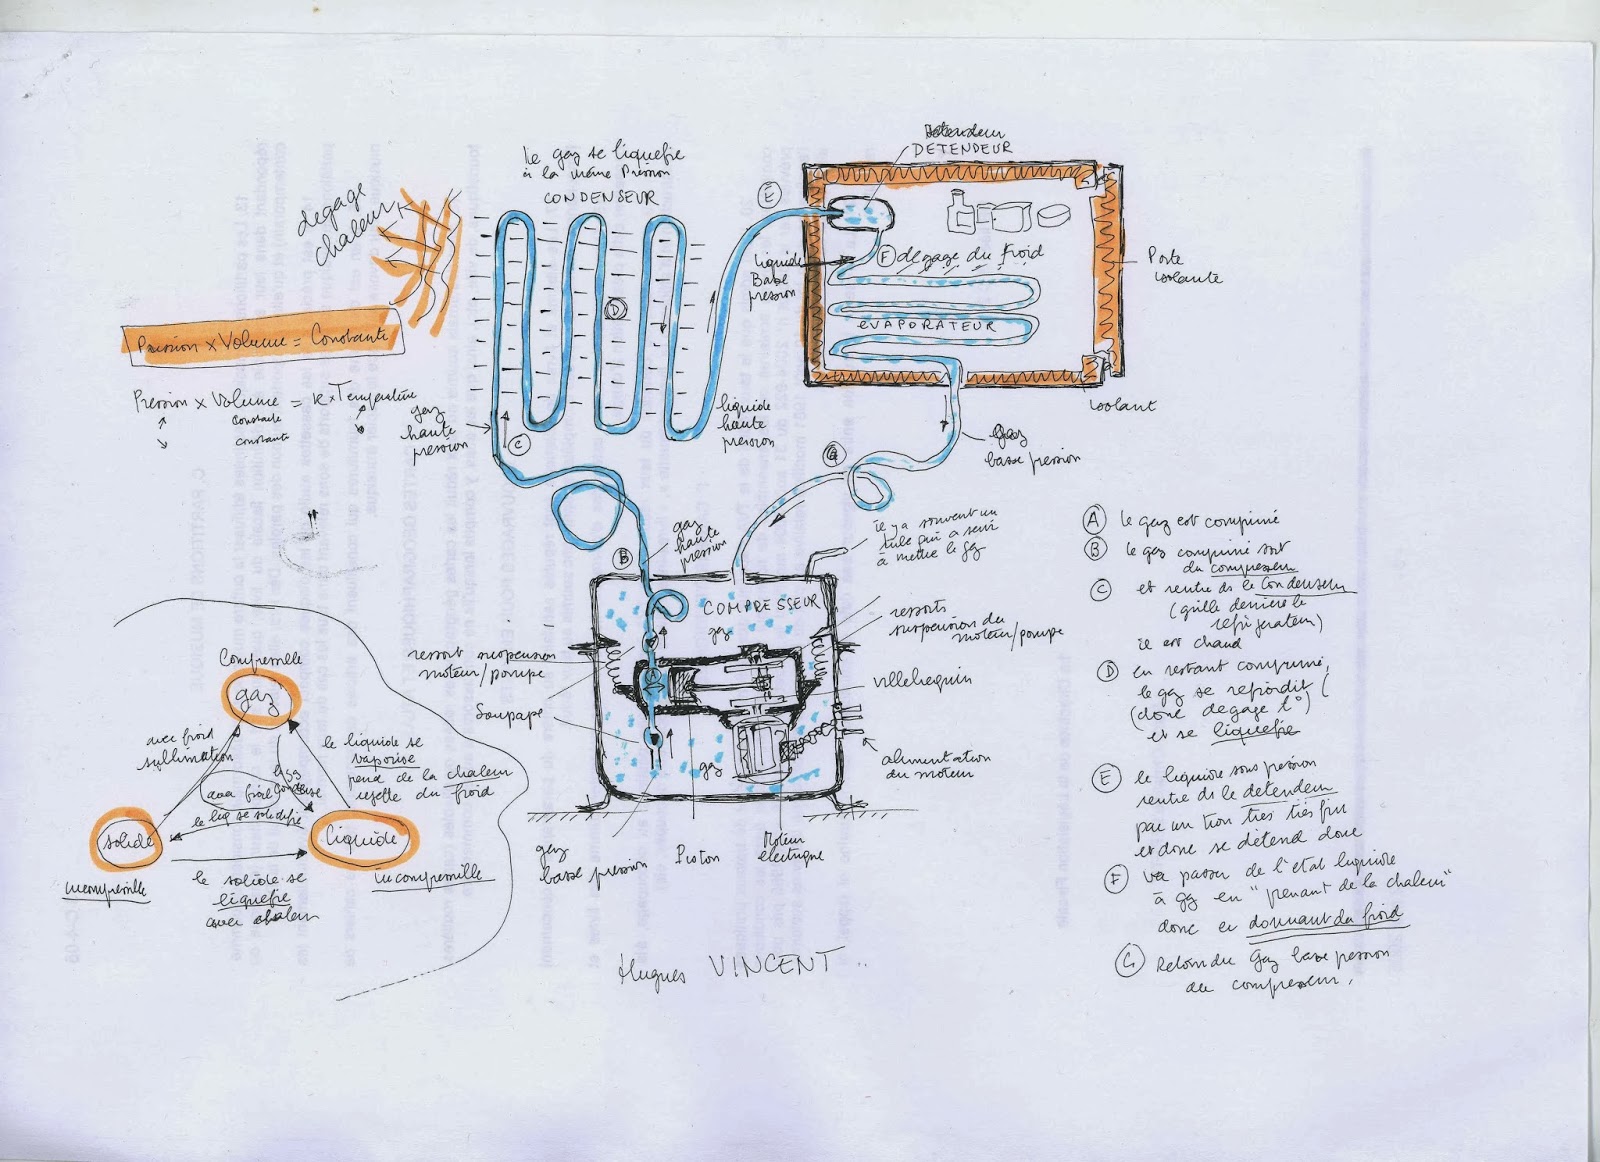 détendeur
DETENDEUR
le gaz se liquefie
à la même Pression
CONDENSEUR
degage
chaleur
E
liquide
Basse
pression
F degage du froid
EVAPORATEUR
Porte
isolante
isolant
D
Pression x Volume = Constante
Pression x Volume = K x Temperature
constante
constante
gaz
haute
pression
C
liquide
haute
pression
G
gaz
basse pression
B
gaz
haute
pression
il y a souvent un
tube qui a servi
à mettre le gaz
COMPRESSEUR
gaz
A
ressorts
suspension du
moteur/pompe
ressort suspension
moteur/pompe
Soupape
villebrequin
alimentation
du moteur
gaz
gaz
basse pression
Piston
Moteur
electrique
Compressible
gaz
avec froid
sublimation
le liquide se
vaporise
prend de la chaleur
rejette du froid
avec froid
le liq se solidifie
solide
liquide
incompressible
incompressible
le solide se
liquefie
avec chaleur
A le gaz est comprimé
B le gaz comprimé sort
du compresseur
C et rentre ds le Condenseur
(grille derrière le
refrigerateur)
il est chaud
D en restant comprimé,
le gaz se refroidit
(donc degage t°)
et se liquefie
E le liquide sous pression
rentre ds le detendeur
par un trou très très fin
et donc se détend donc
F va passer de l'etat liquide
à gaz en "prenant de la chaleur"
donc en donnant du froid
G Retour du Gaz basse pression
au compresseur,
Hugues VINCENT..